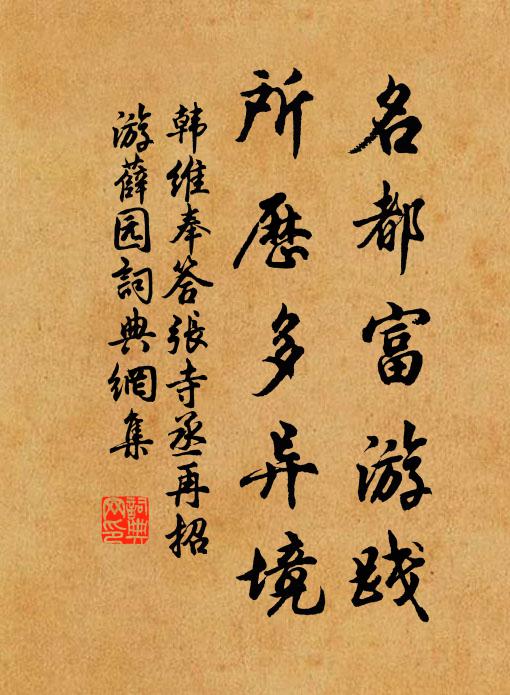 名都富游践
所历多异境
韩维奉答张寺丞再招
游薛园词典網集
詞典
网印